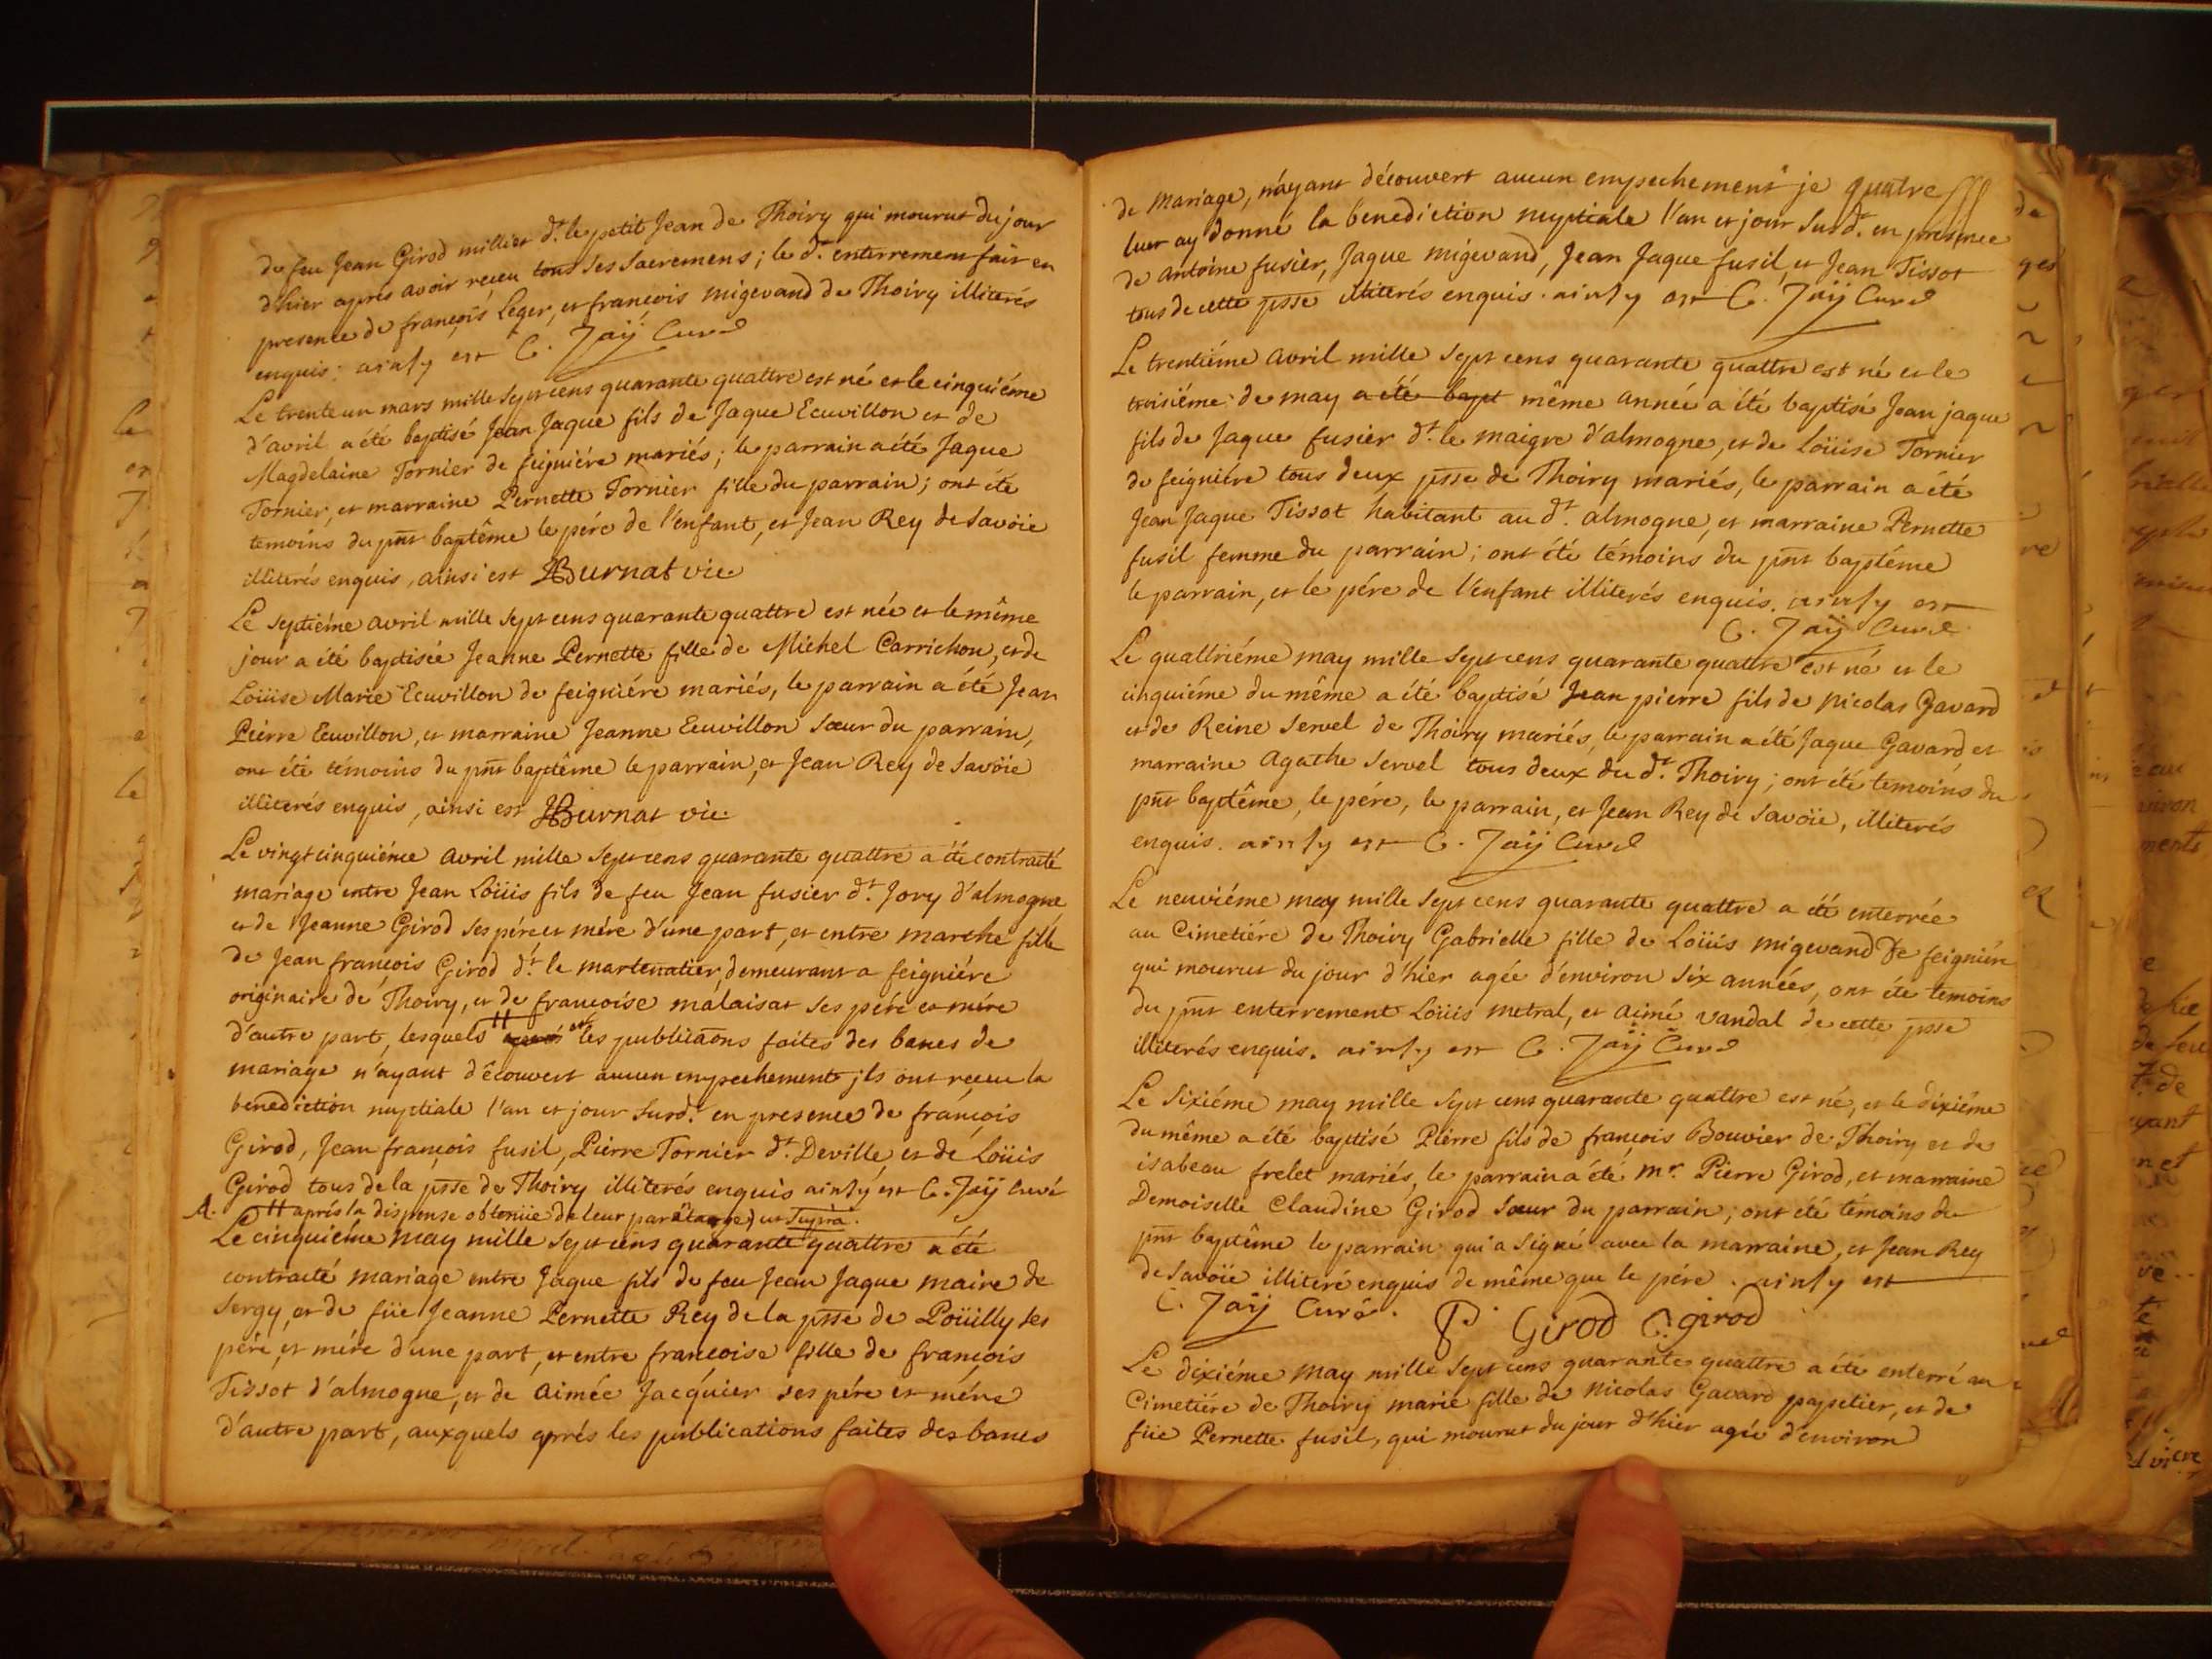 de feu Jean Girod millier d.t le petit Jean de Thoiry qui mourut du jour
d'hier aprés avoir reçeu tous ses Sacremens; le d.t enterrement fait en
presence de françois Leger, et françois migevand de Thoiry illiterés
enquis: ainsy est C. Jaÿ Curé
Le trente un mars mille Sept cens quarante quattre est né et le cinquiéme
d'avril a été baptisé Jean Jaque fils de Jaque Ecuvillon et de
Magdelaine Tornier de feigniére mariés; le parrain a été Jaque
Tornier, et marraine Pernette Tornier fille du parrain; ont été
temoins du pnt baptême le pére de l'enfant, et Jean Rey de Savöie
illiterés enquis, ainsi est JBurnat vic.
Le septiéme avril mille Sept cens quarante quattre est née et le même
jour a été baptisée Jeanne Pernette fille de Michel Carrichon, et de
Loüise Marie Ecuvillon de feigniére mariés, le parrain a été Jean
Pierre Ecuvillon, et marraine Jeanne Ecuvillon Sœur du parrain,
ont été témoins du pnt baptême le parrain, et Jean Rey de Savöie
illiterés enquis, ainsi est JBurnat vic.
Le vingt cinquiéme avril mille Sept cens quarante quattre a été contracté
mariage entre Jean Loüis fils de feu Jean fusier d.t Jory d'almogne
et de Jeanne Girod ses pére et mére d'une part, et entre marthe fille
de Jean francois Girod d.t le martenatier, demeurant a feigniére
originaire de Thoiry, et de francoise malaisat ses pére et mére
d'autre part, lesquels # aprés les publicãons faites des bancs de
mariage n'ayant découvert aucun empechement jls ont reçeu la
benediction nuptiale l'an et jour Susd.t en presence de françois
Girod, Jean françois fusil, Pierre Tornier d.t Deville et de Loüis
Girod tous de la psse de Thoiry illiterés enquis ainsy est C. Jaÿ Curé
A. # aprés la dispense obtenüe de leur parentage) ut Supra.
Le cinquiéme may mille Sept cens quarante quattre a été
contracté mariage entre Jaque fils de feu Jean Jaque maire de
Sergy, et de füe Jeanne Pernette Rey de la psse de Poüilly ses
pére, et mére d'une part, et entre francoise fille de françois
Tissot d'almogne, et de aimée Jacquier ses pére et mére
d'autre part, auxquels aprés les publications faites des bancs
de mariage, n'ayant découvert aucun empechement je quatre
luer ay donné la benediction nuptiale l'an et jour Susd.t en presence
de antoine fusier, Jaque migevand, Jean Jaque fusil, et Jean Tissot
tous de cette psse illiterés enquis. ainsy est C. Jaÿ Curé
Le trentiéme avril mille Sept cens quarante quattre est né et le
troisiéme de may a été bapt même année a été baptisé Jean jaque
fils de Jaque fusier d.t le maigre d'almogne, et de Loüise Tornier
de feigniére tous deux psse de Thoiry mariés, le parrain a été
Jean Jaque Tissot habitant au d.t almogne, et marraine Pernette
fusil femme du parrain; ont été témoins du pnt baptême
le parrain, et le pére de l'enfant illiterés enquis. ainsy est
C. Jaÿ Curé
Le quattriéme may mille Sept cens quarante quattre est né et le
cinquiéme du même a été baptisé Jean pierre fils de Nicolas Gavard
et de Reine Servel de Thoiry mariés, le parrain a été Jaque Gavard, et
marraine Agathe Servel tous deux du d.t Thoiry; ont été temoins du
pnt baptême, le pére, le parrain, et Jean Rey de Savöie, illiterés
enquis. ainsy est C. Jaÿ Curé
Le neuviéme may mille Sept cens quarante quattre a été enterrée
au Cimetiére de Thoiry Gabrielle fille de Loüis migevand De feigniére
qui mourut du jour d'hier agée d'environ six années, ont été temoins
du pnt enterrement Loüis metral, et aimé vandal de cette psse
illiterés enquis. ainsy est C. Jaÿ Curé
Le Sixiéme may mille Sept cens quarante quattre est né, et le dixiéme
du même a été baptisé Pierre fils de françois Bouvier de Thoiry et de
isabeau frelet mariés, le parrain a été, mr. Pierre Girod, et marraine
Demoiselle Claudine Girod Sœur du parrain; ont été témoins du
pnt baptême le parrain qui a Signé avec la marraine, et Jean Rey
de Savöie illiteré enquis de même que le pére. ainsy est
C. Jaÿ Curé. P. Girod C. girod
Le dixiéme may mille Sept cens quarante quattre a été enterré au
Cimetiére de Thoiry marie fille de Nicolas Gavard papetier, et de
füe Pernette fusil, qui mourut du jour d'hier agée d'environ